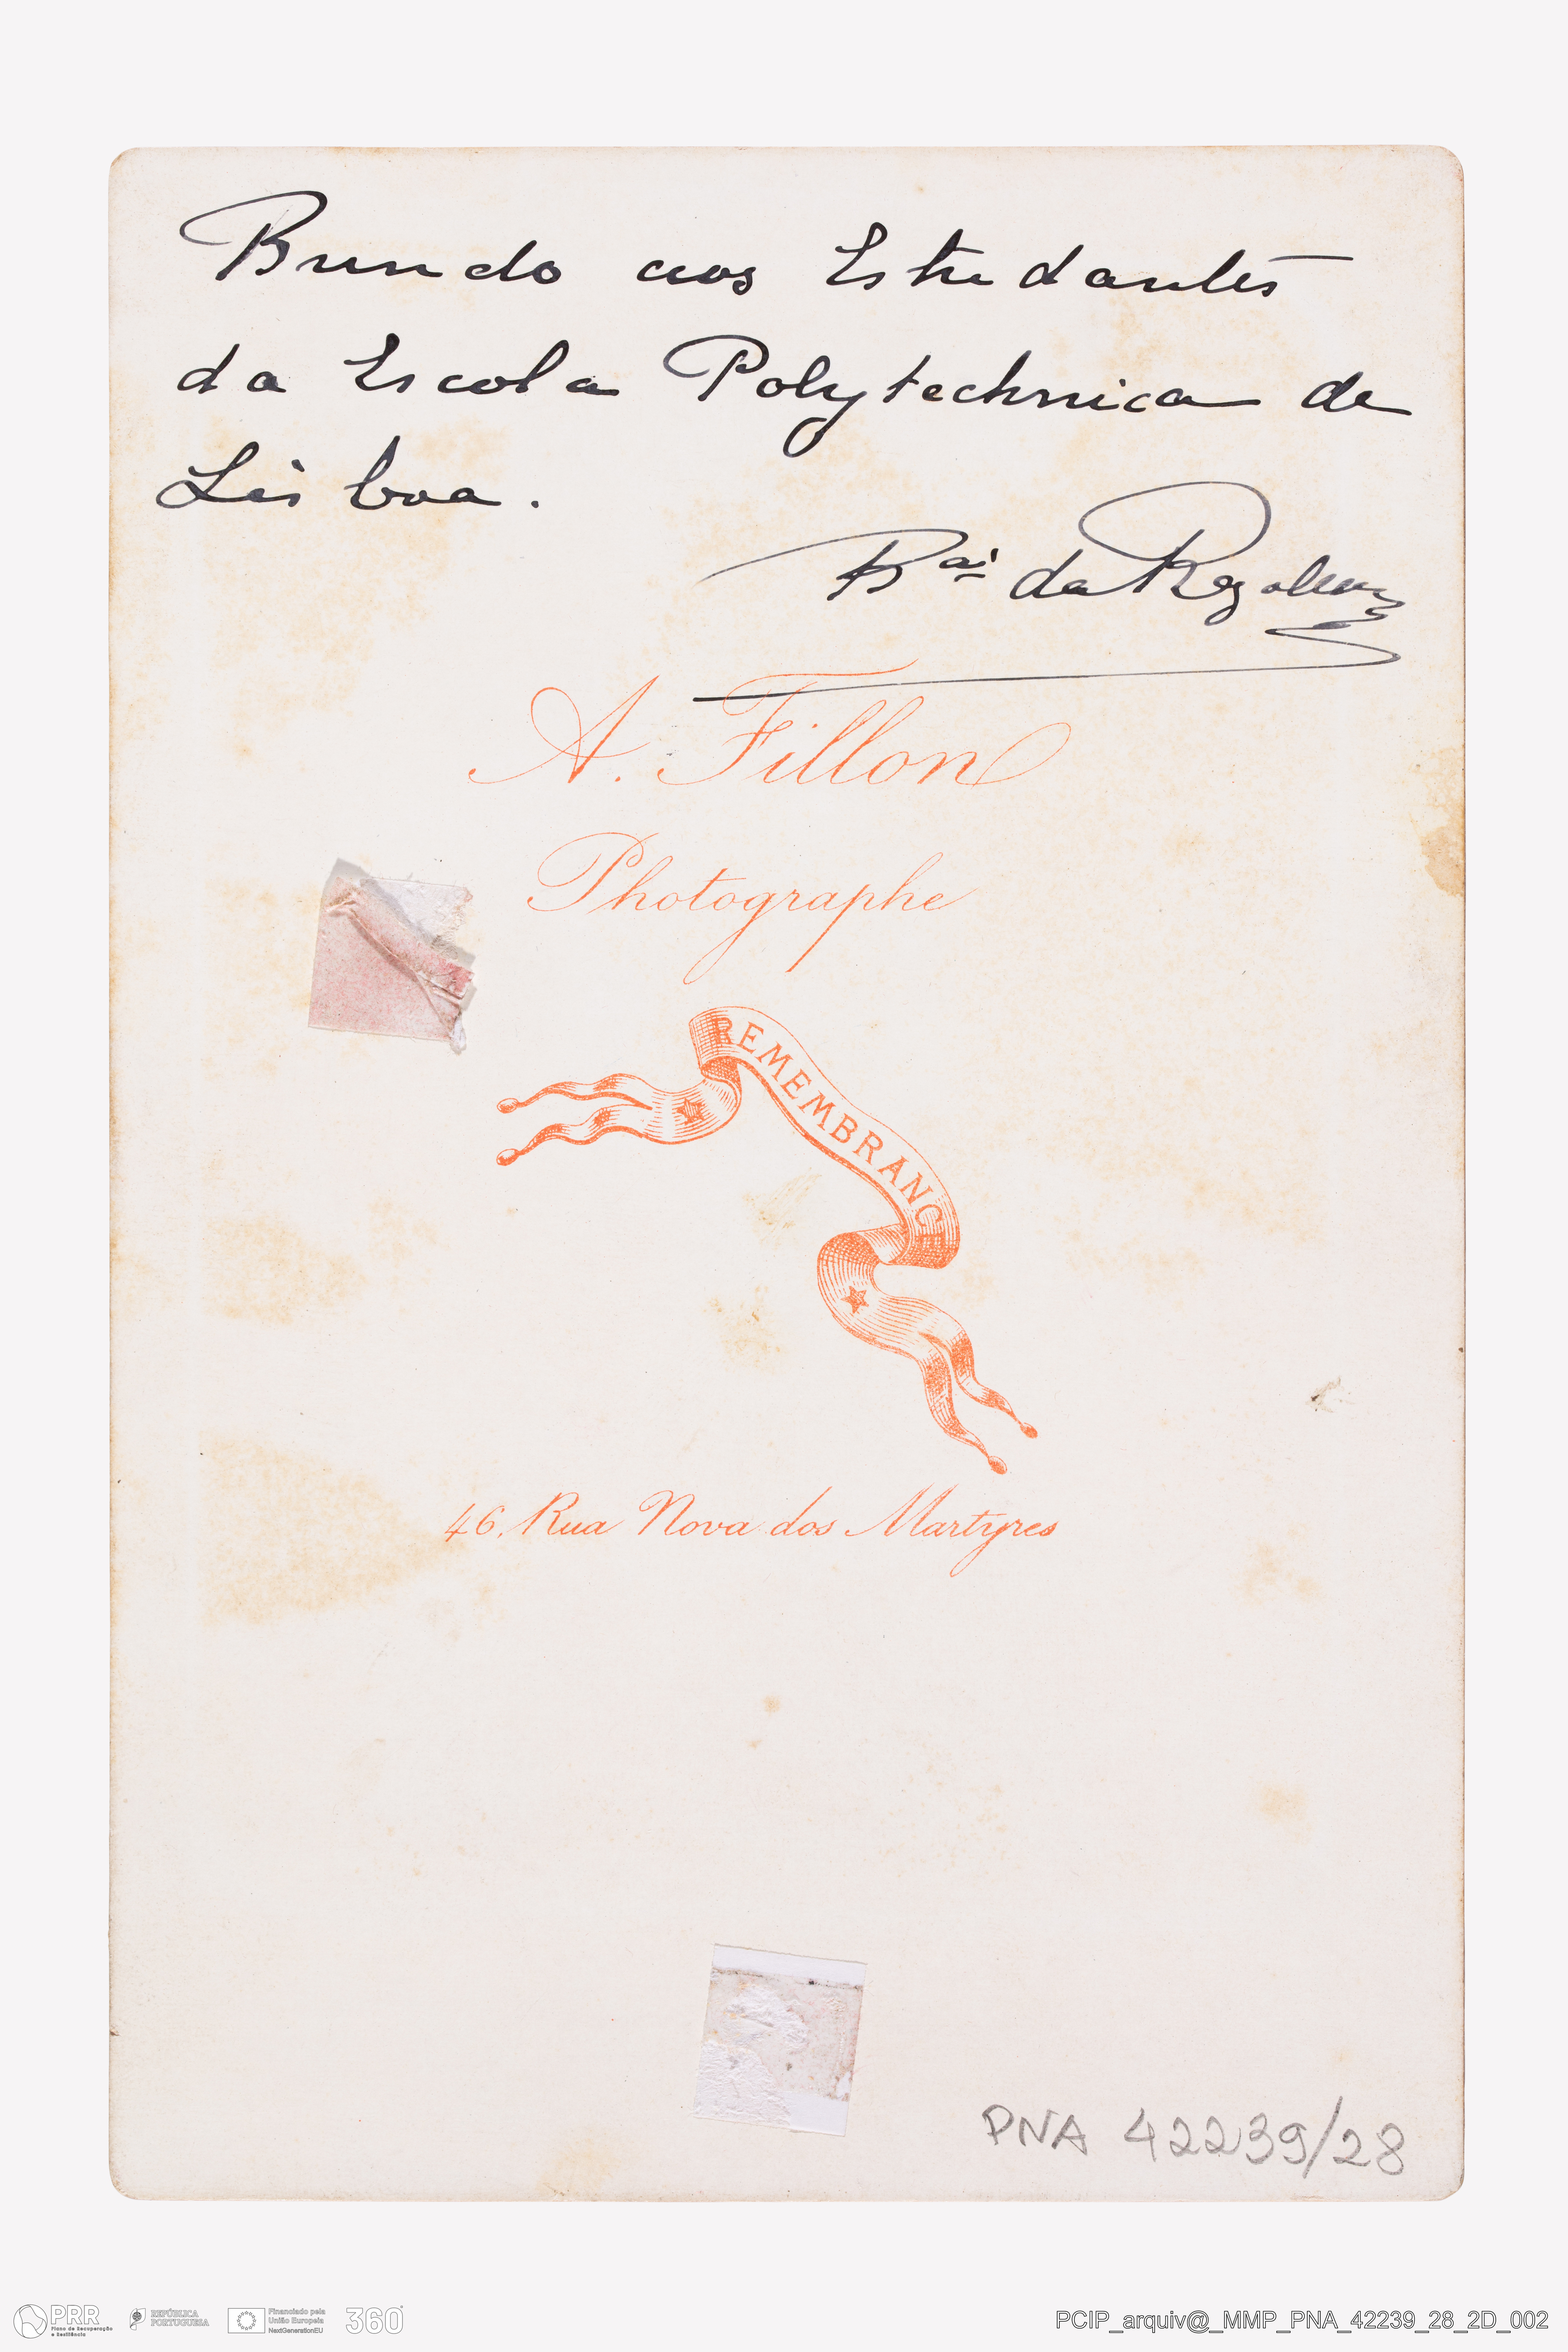 Brinde aos Estudantes
da Escola Polytechnica de
Lisboa.
da Regaleira
A. Fillon
Photographe
REMEMBRANCE
46, Rua Nova dos Martyres
PNA 42239/28
PRR
Plano de Recuperação
e Resiliência
REPÚBLICA
PORTUGUESA
Financiado pela
União Europeia
NextGenerationEU
360°
PCIP_arquiv@_MMP_PNA_42239_28_2D_002